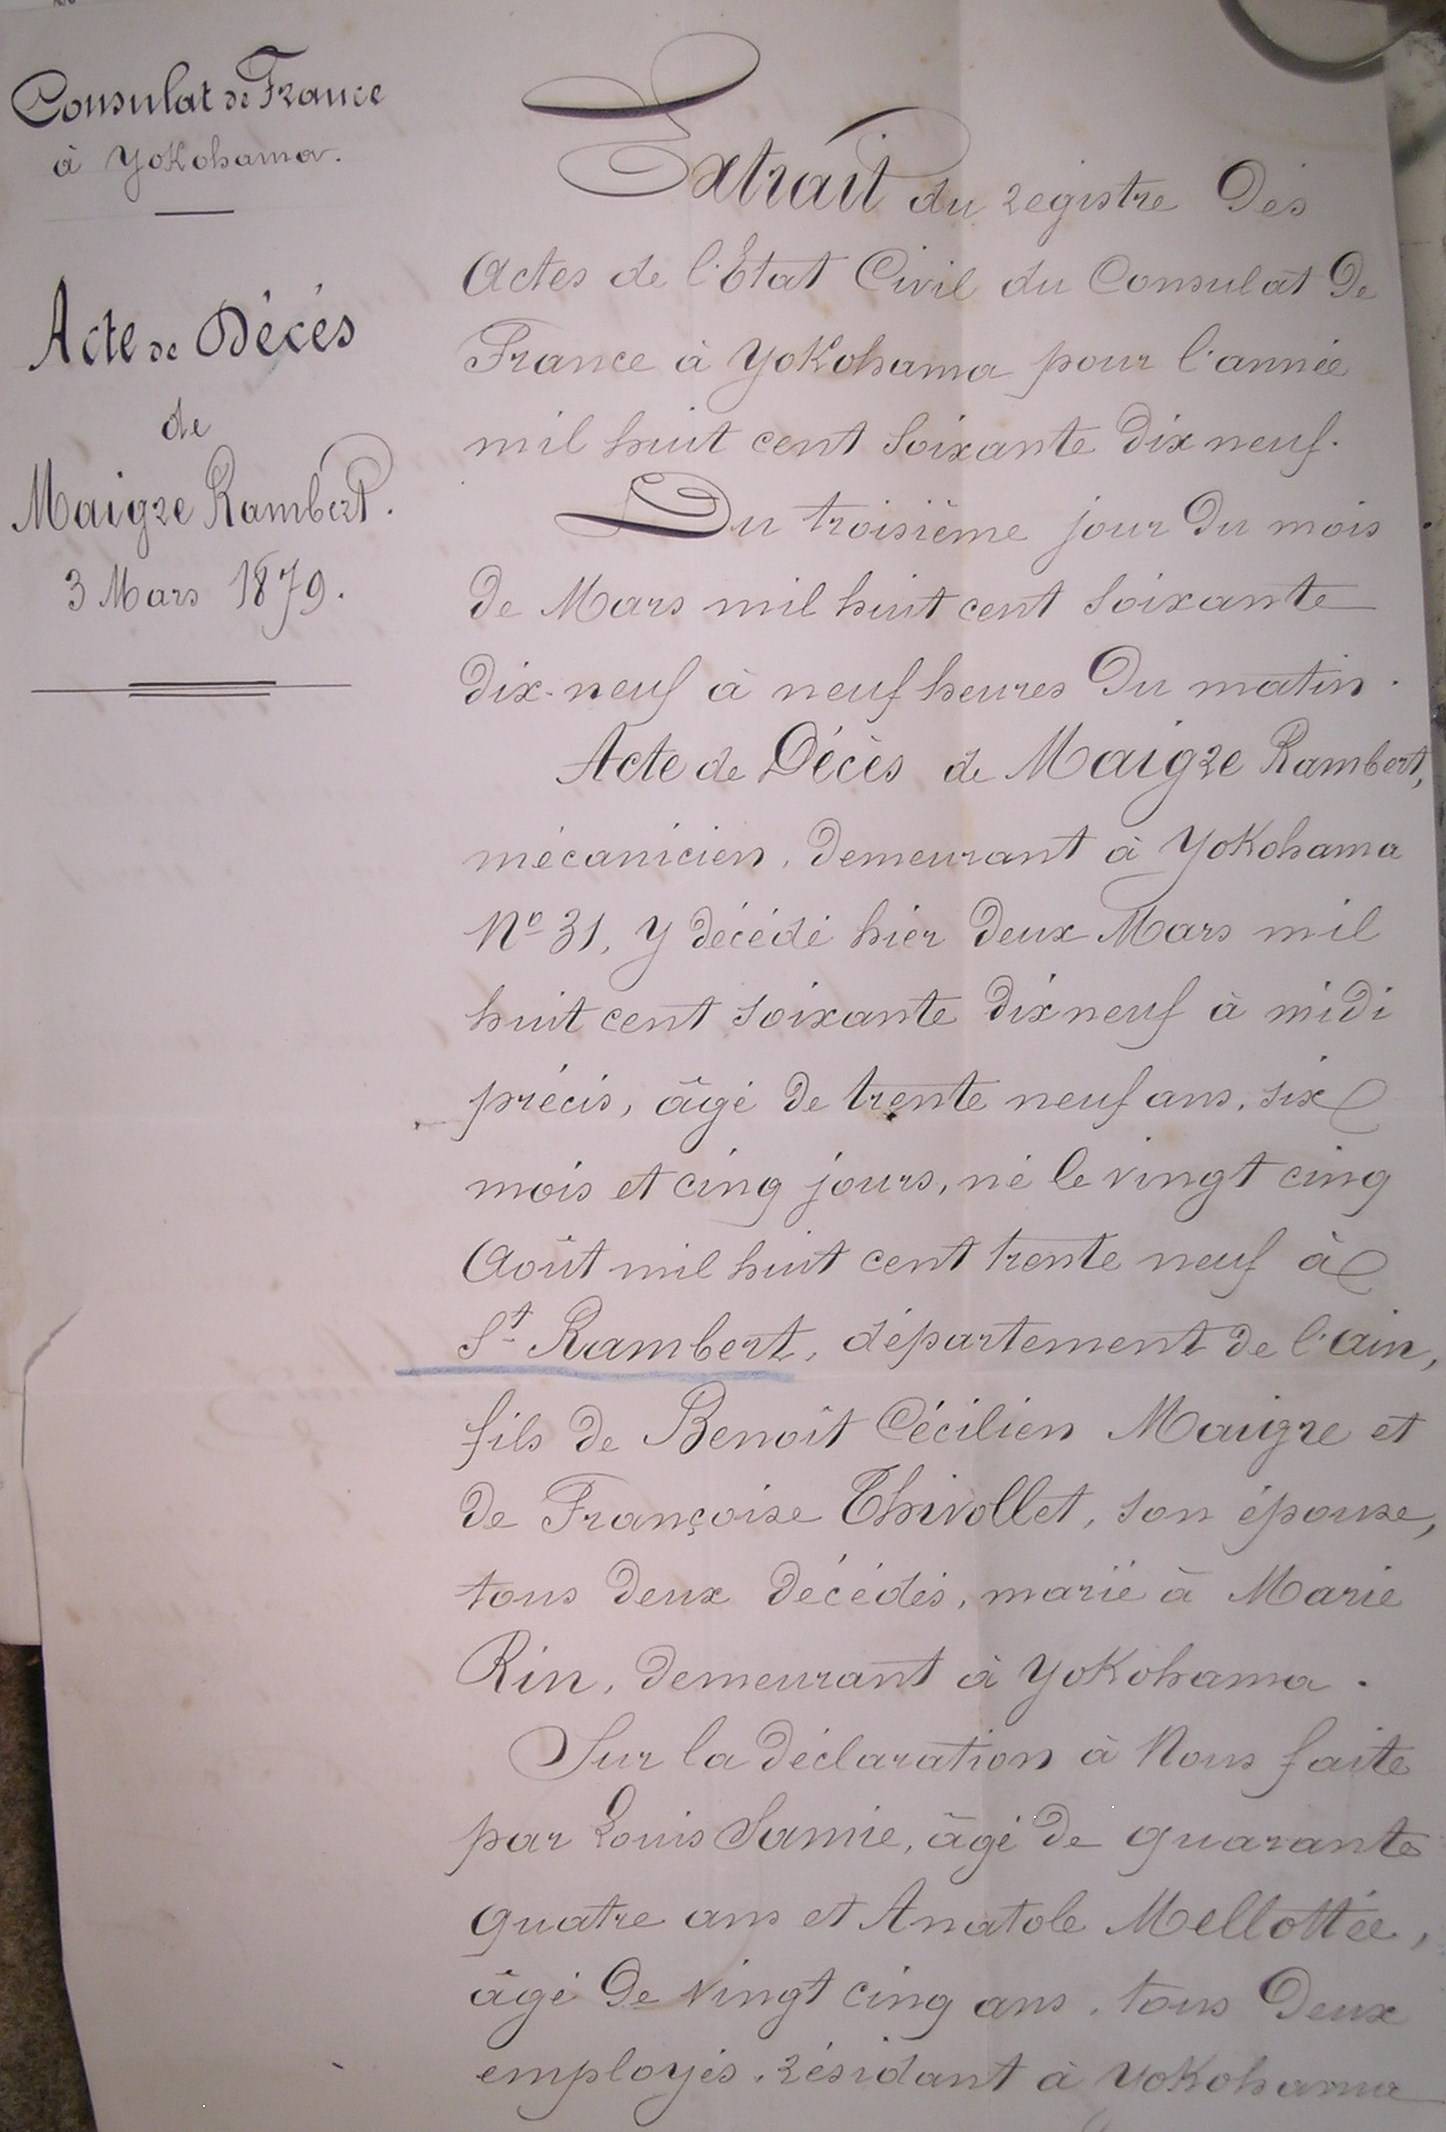 Consulat de France
à Yokohama.
Acte de Décès
de
Maigre Rambert.
3 Mars 1879.
Extrait du registre des
Actes de l'Etat Civil du Consulat de
France à Yokohama pour l'année
mil huit cent soixante dix neuf.
Du troisième jour du mois
de Mars mil huit cent soixante
dix-neuf à neuf heures du matin.
Acte de Décès de Maigre Rambert,
mécanicien, demeurant à Yokohama
No 31, y décédé hier deux Mars mil
huit cent soixante dix neuf à midi
précis, âgé de trente neuf ans, six
mois et cinq jours, né le vingt cinq
Août mil huit cent trente neuf à
St Rambert, département de l'ain,
fils de Benoît Cécilien Maigre et
de Françoise Thivollet, son épouse,
tous deux décédés, marié à Marie
Rin, demeurant à Yokohama.
Sur la déclaration à Nous faite
par Louis Samie, âgé de quarante
quatre ans et Anatole Mellottée,
âgé de vingt cinq ans, tous deux
employés, résidant à Yokohama